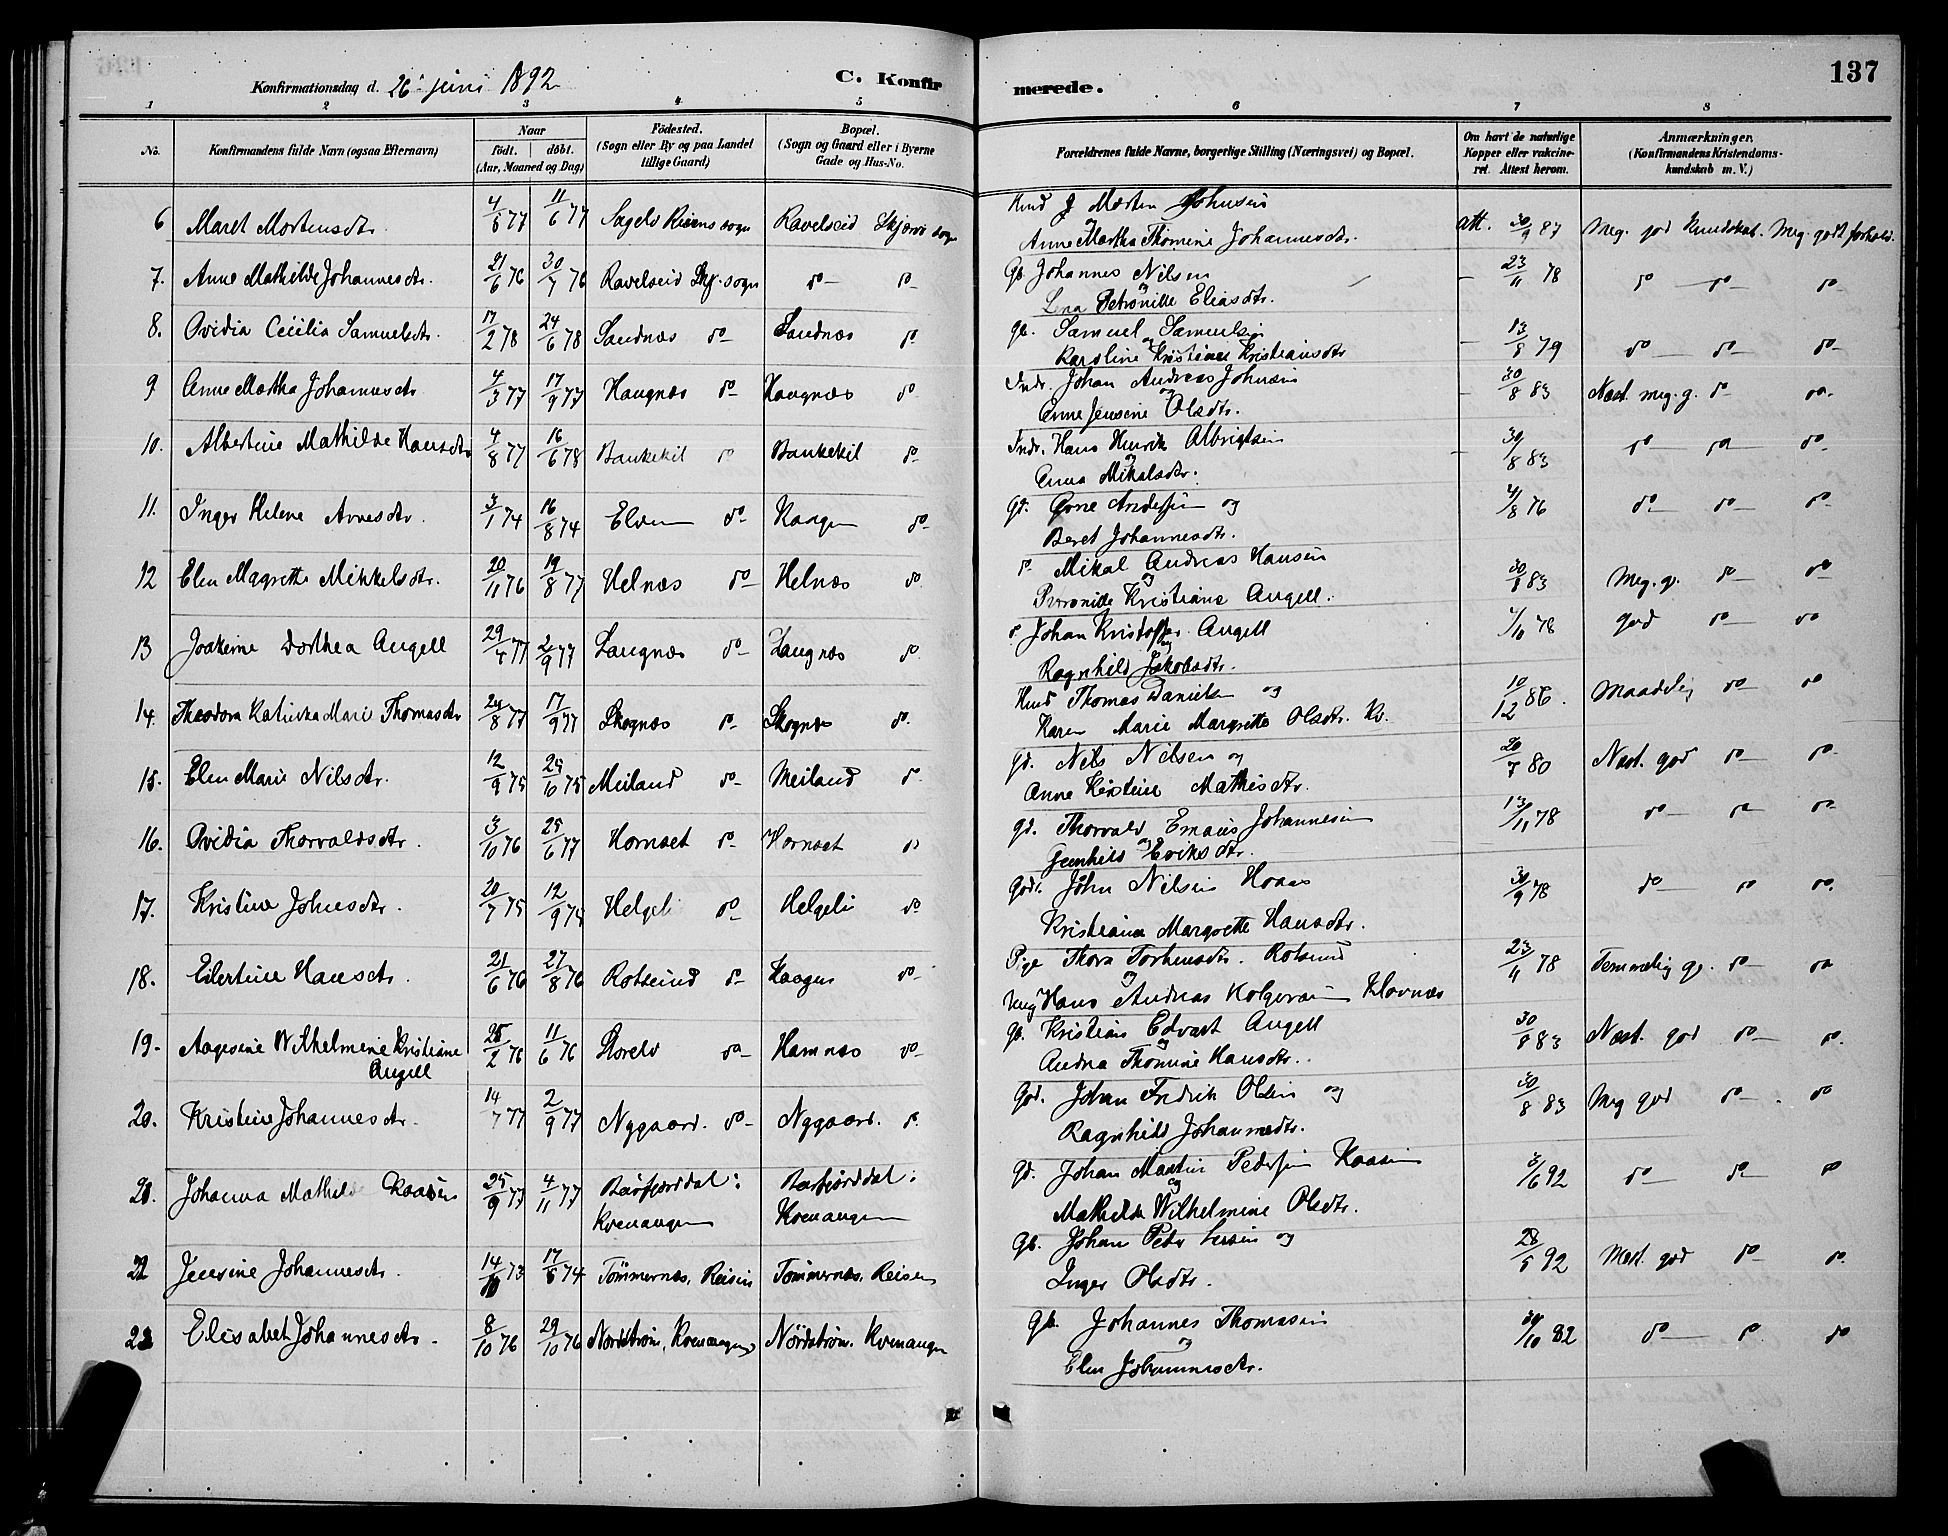 137
Konfirmationsdag d. 26 juni 1892
C. Konfirmerede.
1 2 3 4 5 6 7 8
No. Konfirmandens fulde Navn (ogsaa Efternavn) Naar født. døbt. (Aar, Maaned og Dag) Fødested. (Sogn eller By og paa Landet tillige Gaard) Bopæl. (Sogn og Gaard eller i Byerne Gade og Hus-No. Forældrenes fulde Navne, borgerlige Stilling (Næringsvei) og Bopæl. Om havt de naturlige Kopper eller vakcineret. Attest herom. Anmærkninger. (Konfirmandens Kristendomskundskab m. V.)
6 Maret Mortensdtr. 4/5 77 11/6 77 Sagelv Ravelseid Skjærvø sogn Morten Johnsen
og Anne Martha Thomine Johannesdtr. att. 30/9 87 Meg. god Kundskab. Meg. godt forhold.
7. Anne Mathilde Johannesdtr. 21/6 76 30/7 76 Ravelseid Skj. sogn do do Gb. Johannes Nilsen
og Lina Petronille Eliasdtr. 23/11 78 do do do
8. Ovidia Cecilia Samuelsdtr. 17/2 78 24/6 78 Sandnæs do Sandnæs do gb. Samuel Samuelsen
og Karoline Kristine Kristiansdtr 13/8 79 do do do
9 Anne Martha Johannesdtr 4/3 77 17/9 77 Haugnæs do Haugnæs do Indr. Johan Andreas Johnsen
og Anne Jensine Olsdtr. 30/8 83 Næst. meg. g. do do
10. Albertine Mathilde Hansdtr 4/8 77 16/6 78 Bankekil do Bankekil do Indr. Hans Henrik Albrigtsen
og Anna Mikalsdtr. 30/8 83 do do do
11. Inger Helene Arnesdtr. 3/1 74 16/8 74 Elven do Kaagen do gd. Arne Andersen og
Beret Johannesdtr. 4/8 76 do do do
12 Elen Magrette Mikkelsdtr. 20/11 76 19/8 77 Helnæs do Helnæs do do Mikal Andreas Hansen
og Petronille Kristiane Angell. 30/8 83 Meg. g. do do
13 Joakime Dorthea Angell 29/4 77 2/9 77 Langnæs do Langnæs do do Johan Kristoffer Angell
og Ragnhild Jakobsdtr. 4/10 78 god do do
14. Theodora Katinka Marie Thomasdtr 24/8 77 17/9 77 Skognæs do Skognæs do Thomas Danielsen og
Karen Marie Margrette Olsdtr. Kv. 10/12 86. Maadelig do do
15. Elen Marie Nilsdtr. 12/9 75 25/10 75 Meiland do Meiland do gd. Nils Nilsen og
Anne Kirstine Mathisdtr. 20/7 80 Næst. god do do
16. Ovidia Thorvaldsdtr. 3/10 76 25/6 77 Hornset do Hornset do gd. Thorvald Emaus Johannesen
og Gunhild Eriksdtr. 13/11 78 do do do
17. Kristine Johnsdtr. 20/7 75 12/9 75 Helgeli do Helgeli do Gdr. John Nilsen Hoaas
Kristiane Margrette Hansdtr. 30/9 78 do do do
18. Eilertine Hansdtr. 21/6 76 27/8 76 Rotsund do Kaagen do Pige Thora Rotsund
og Ung Hans Andreas Klovnæs 23/11 78 Temmelig g. do do
19. Aagesine Wilhelmine Kristiane
Angell 2/2 76 11/6 76 Storelv do Hamnæs do gb. Kristian Edvart Angell
og Andrea Thomine Hansdtr. 30/8 83 Næst. god do do
20. Kristine Johannesdtr. 14/7 77 2/9 77 Nygaard. do Nygaard. do Gdr. Johan Fredrik Olsen og
Ragnhild Johannesdtr. 30/8 83 Meg god do do
21. Johanna Mathilde Kaasen 25/9 77 4/11 77 Burfjorddal:
Kvenangen Burfjorddal:
Kvenangen gd. Johan Martin Pedersen Kaasen
og Mathilde Wilhelmine Olsdtr. 3/6 92 do do do
22 Jensine Johannesdtr. 14/10 73 17/5 74 Tømmernæs, Reisen Tømmernæs, Reisen gb. Johan Peder og
Inger Olsdtr. 28/5 92 Næst. god do do
23 Elisabet Johannesdtr. 8/10 76 29/10 76 Nordstrøm, Kvenangen Nordstrøm. Kvenangen Gb. Johannes Thomasen
og Elen Johannesdtr. 10 82 do do do